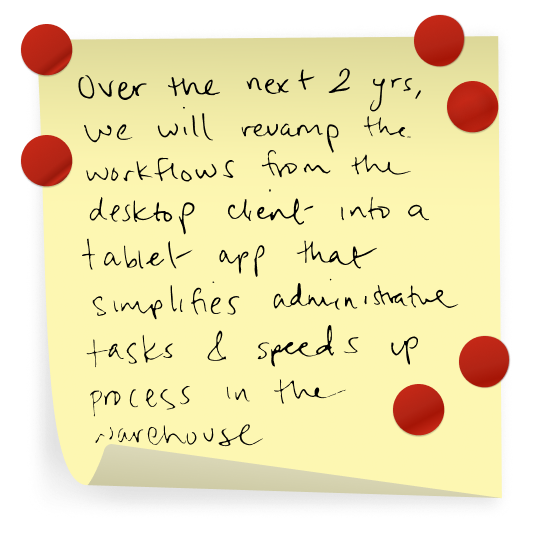 Over the next 2 yrs,
we will revamp the
workflows from the
desktop client into a
tablet app that
simplifies administrative
tasks & speeds up
process in the
warehouse